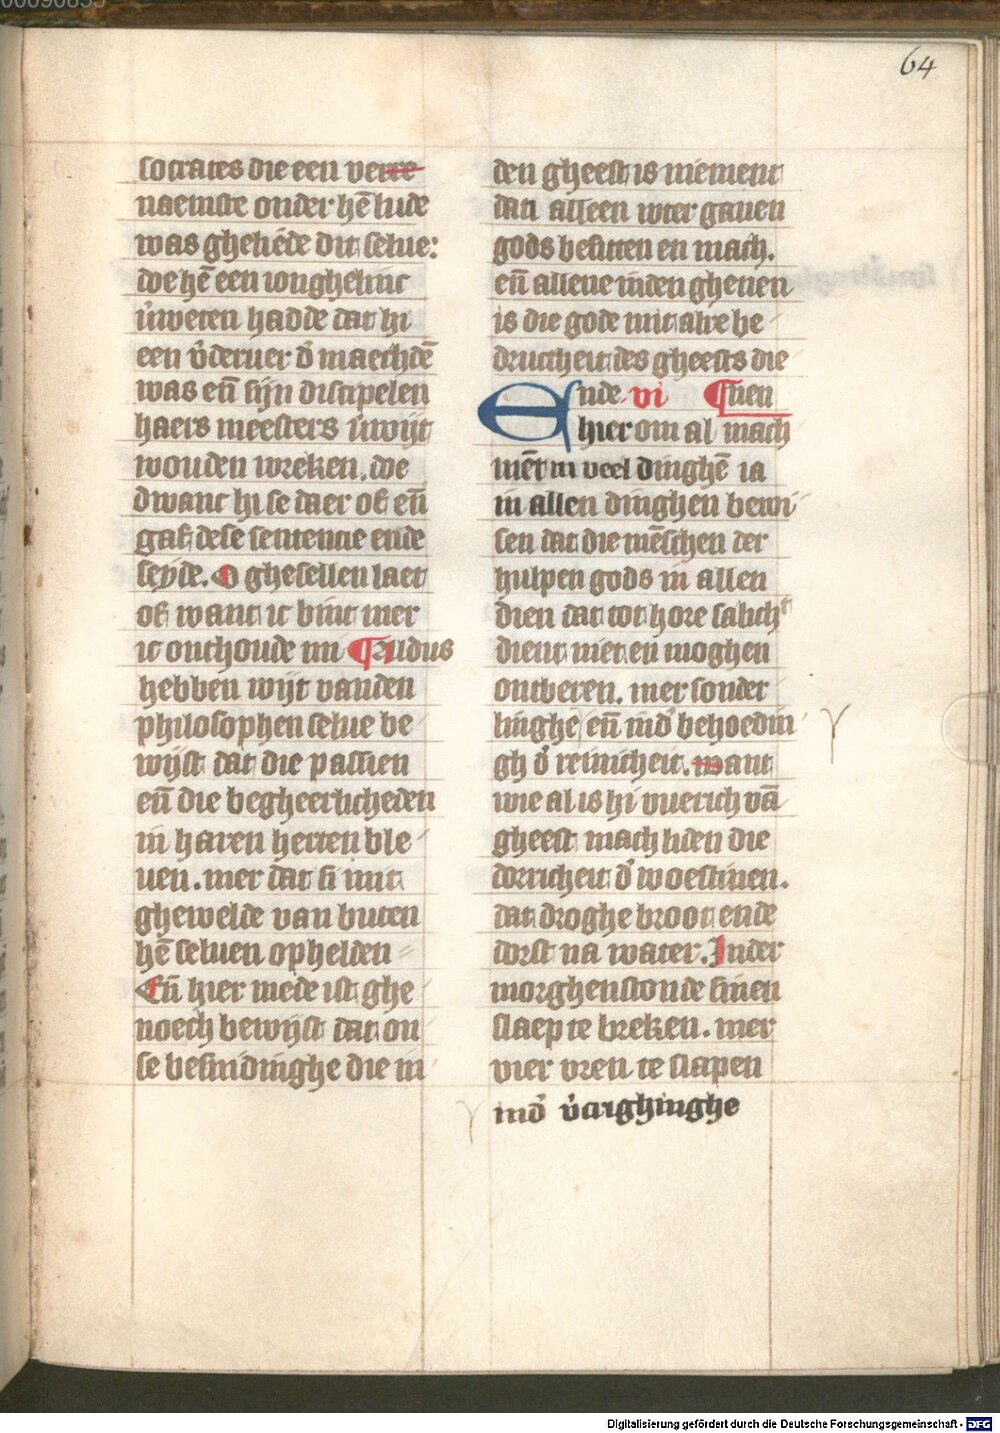 64
socrates die een verre
naemste onder hē lude
was ghehēde dit selue:
doe hē een ionghelinc
v̉weten hadde dat hi
een v̉deruer d̉ maechdē
was eñ sijn discipelen
haers meesters v̉wijt
wouden wreken. doe
dwanc hi se daer of eñ
gaf dese sentencie ende
seyde. O ghesellen laet
of want ic bint mer
ic onthoude mi ¶ Aldus
hebben wijt vanden
philosophen selue be
wijst dat die passien
eñ die begheerlicheden
in haren herten ble
uen. mer dat si mit
ghewelde van buten
hē seluen ophelden
Eñ hier mede ist ghe
noech bewijst dat on
se besnidinghe die in
den gheest is niement
dan alleen wter gauen
gods besitten en mach.
eñ alleue inden ghenen
is die gode mit alre be
dructheit des gheests die
Ende vi ¶ nen
hier om al mach
mēt in veel dinghē ia
in allen dinghen bewi
sen dat die mēschen der
hulpen gods in allen
dien dat tot hore salichᵗ
dient niet en moghen
ontberen. mer sonder
linghe eñ ind̉ behoedin
gh d̉ reinicheit. want
wie al is hi vuerich vā
gheest mach liden die
dorricheit d̉ woestinen.
dat droghe broot ende
dorst na water. Inder
morghenstonde sinen
slaep te breken. mer
vier vren te slapen
ind̉ v̉crighinghe
Digitalisierung gefördert durch die Deutsche Forschungsgemeinschaft - DFG